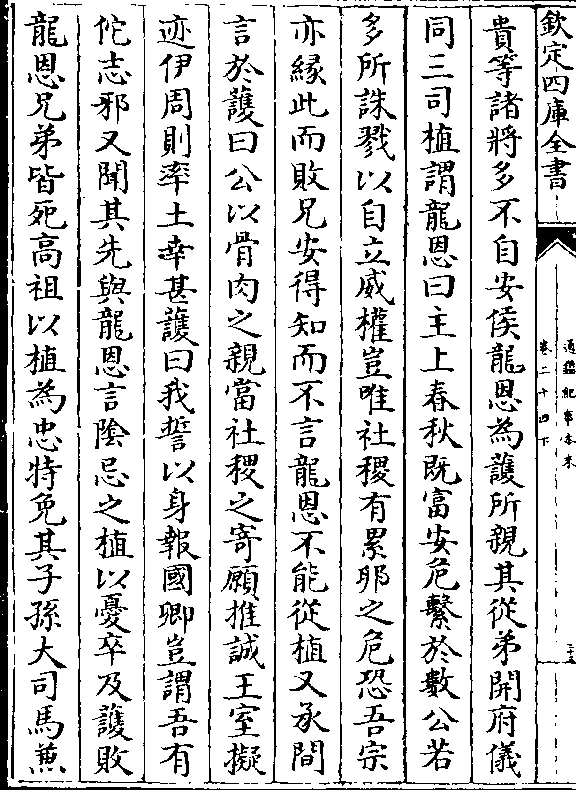 欽定四庫全書
通鑑紀事本末
卷二十四下
貴等諸將多不自安侯龍恩為護所親其從弟開府儀
同三司植謂龍恩曰主上春秋既富安危繫於數公若
多所誅戮以自立威權豈唯社稷有累卵之危恐吾宗
亦緣此而敗兄安得知而不言龍恩不能從植又承間
言於護曰公以骨肉之親當社稷之寄願推誠王室擬
迹伊周則率土幸甚護曰我誓以身報國卿豈謂吾有
佗志邪又聞其先與龍恩言陰忌之植以憂卒及護敗
龍恩兄弟皆死高祖以植為忠特免其子孫大司馬兼